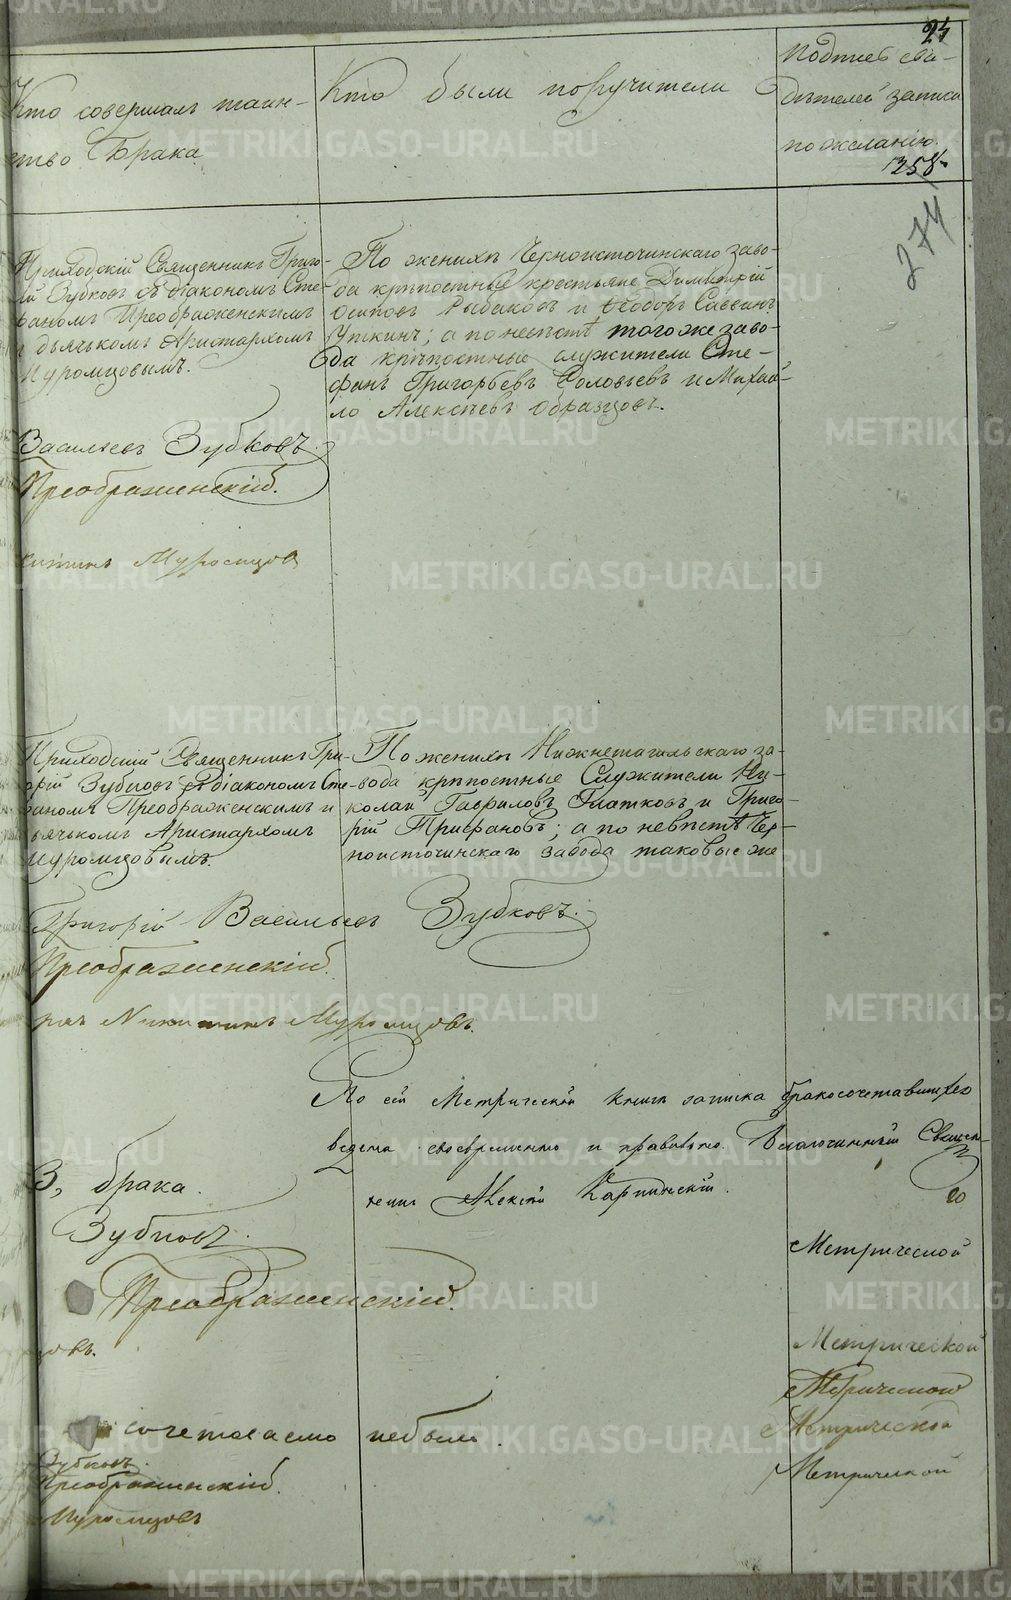 24
Кто совершалъ таин-
ство Брака
Кто были поручители
Подпись сви-
дѣтелей записи
по желанію.
258
274
Приходскій Священникъ Григо-
рій Зубковъ съ діакономъ Сте-
фаномъ Преображенскимъ
и дьячькомъ Аристархомъ
Муромцовымъ.
По женихѣ Черноисточинскаго заво-
да крѣпостные крестьяне Димитрій
Осиповъ Рыбаковъ и Ѳеодоръ Саввинъ
Уткинъ; а по невѣстѣ тогоже заво-
да крѣпостные служители Сте-
фанъ Григорьевъ Соловьевъ и Михай-
ло Алексѣевъ Образцовъ.
Васильевъ Зубковъ
Преображенскій.
китинъ Муромцовъ
Приходскій Священникъ Гри-
горій Зубковъ съ діакономъ Сте-
фаномъ Преображенскимъ и
дьячькомъ Аристархомъ
Муромцовымъ.
По женихѣ Нижнетагильскаго за-
вода крѣпостные Служители Ни-
колай Гавриловъ Глатковъ и Григо-
рій Трифановъ; а по невѣстѣ Чер-
ноисточинскаго завода таковые же
Григорій Васильевъ Зубковъ.
Преображенскій.
рхъ Никитинъ Муромцовъ.
По сей Метрической книгѣ записка бракосочетавшихся
ведена своевременно и правильно. Благочинный Священ-
никъ Алексій Карпинскій.
3, брака.
Зубковъ.
Метрической
Преображенскій.
цовъ.
Метрической
Метрической
сочетаемо небыло.
Метрической
Зубковъ.
Преображенскій.
Метрической
Муромцовъ
METRIKI.GASO-URAL.RU